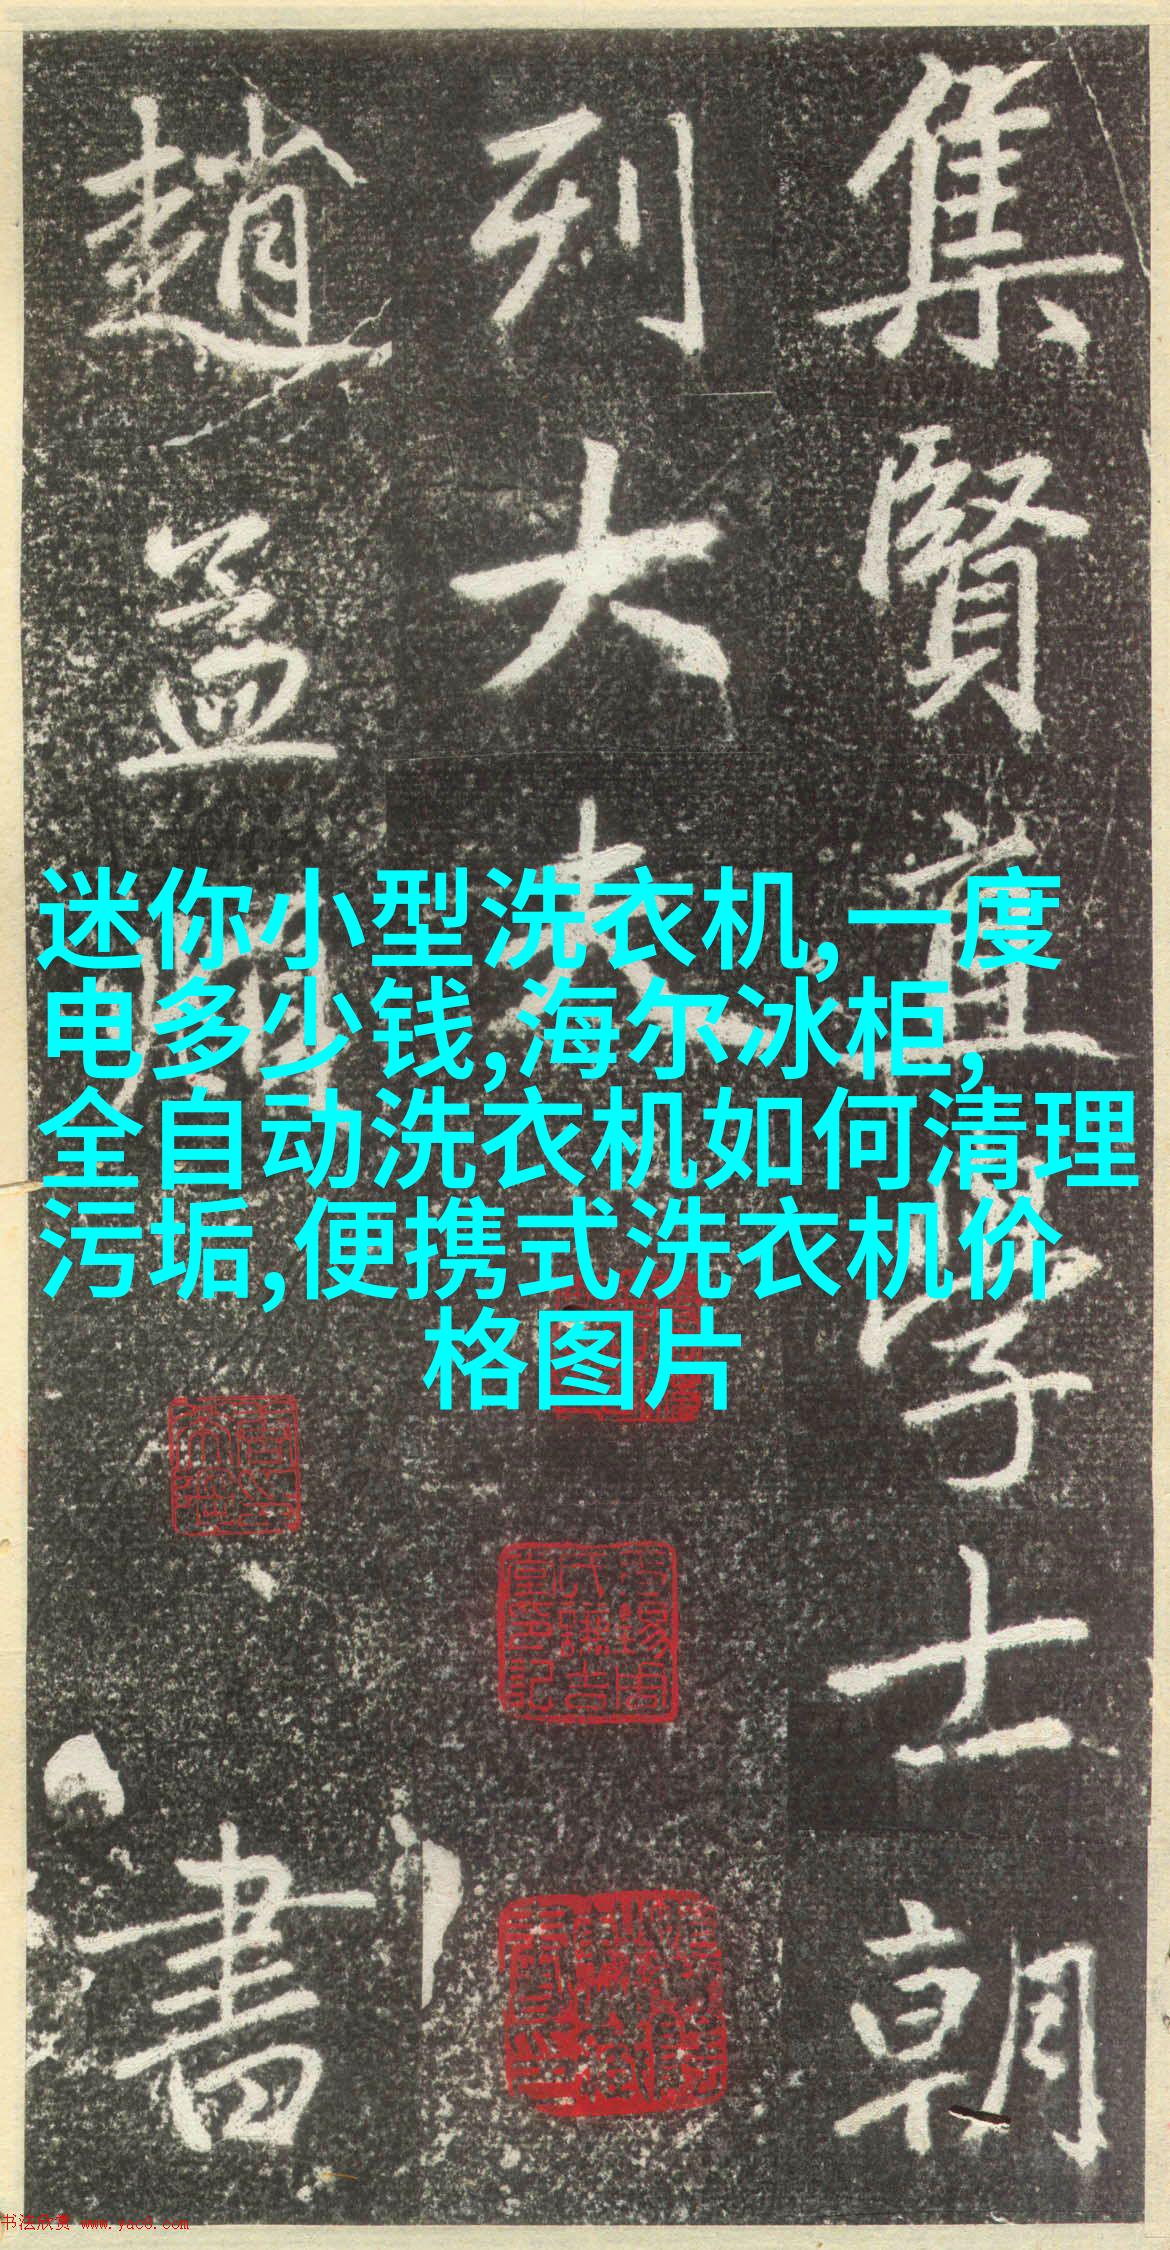 集賢直學士朝
列大夫
趙孟頫
書
迷你小型洗衣机,一度
电多少钱,海尔冰柜,
全自动洗衣机如何清理
污垢,便携式洗衣机价
格图片
书法欣赏 www.yac8.com